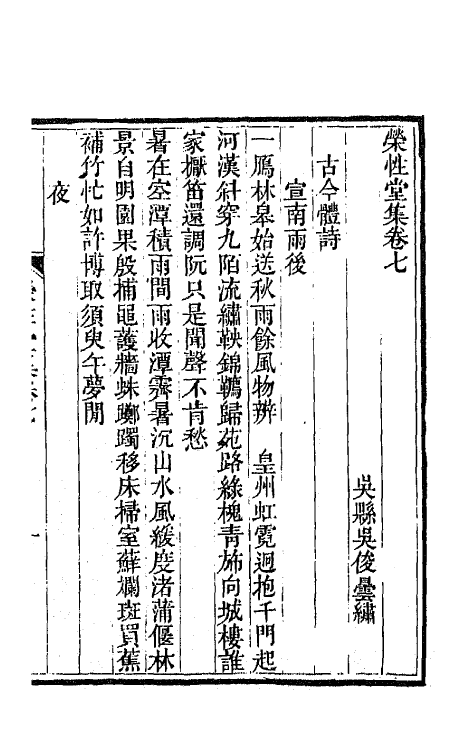 榮性堂集卷七
吳縣吳俊曇繡
古今體詩
宣南雨後
一鴈林皋始送秋雨餘風物辨　皇州虹霓迥抱千門起
河漢斜穿九陌流繡鞅錦韉歸苑路綠槐青斾向城樓誰
家擫笛還調阮只是聞聲不肯愁
暑在空潭積雨間雨收潭霽暑沉山水風緩度渚蒲偃林
景自明園果殷捕黽護牆蛛躑躅移床掃室蘚斕斑買蕉
補竹忙如許博取須臾午夢閒
夜